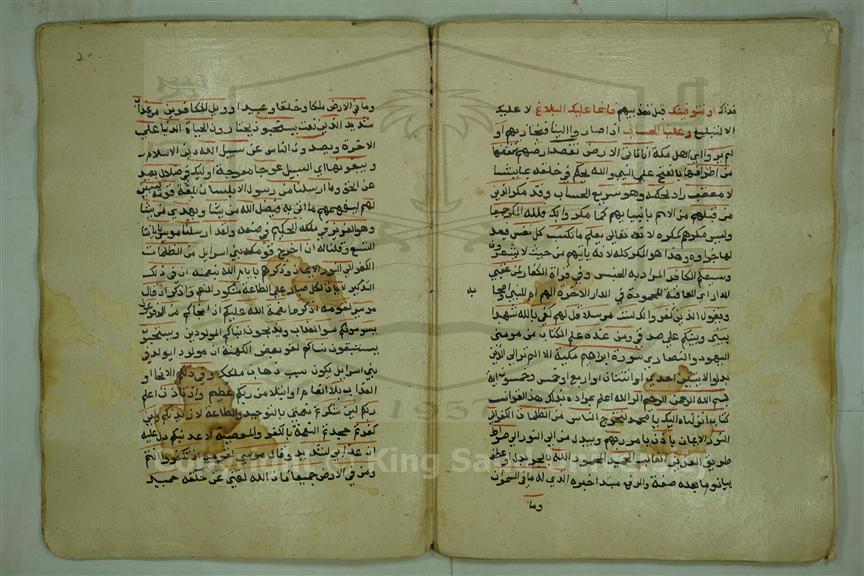 فذاك او نتوفينك قبل تعذيبهم فانما عليك البلاغ لا عليك
الا التبليغ وعلينا الحساب اذا صاروا الينا فنجازيهم او
لم يروا اي اهل مكة انا ناتي الارض نقصد ارضهم ننقصها
من اطرافها بالفتح علي النبي والله يحكم في خلقه بما يشا
لا معقب راد لحكمه وهو سريع الحساب وقد مكر الذين
من قبلهم من الامم بانبيايهم كما مكروا بك فلله المكر جميعا
وليس مكرهم كمكره لانه تعالي يعلم ما تكسب كل نفس فيعد
لها جزاوه وهذا هو المكر كله لانه ياتيهم من حيث لا يشعرون
وسيعلم الكافر المراد به الجنس وفي قراة الكفار لمن عقبي
الدار اي العاقبة المحمودة في الدار الاخرة الهم ام للنبي واصحا
به
ويقول الذين كفروا لك لست مرسلا قل لهم كفي بالله شهيدا
بيني وبينكم علي صدقي ومن عنده علم الكتاب من مومني
اليهود والنصاري سورة ابراهيم مكية الا الم تر الي الذين
بدلوا الايتين احدي او اثنتان او اربع او خمس وخمسون اية
بسم الله الرحمن الرحيم الر الله اعلم بمراده بذلك هذا القران
كتاب انزلناه اليك يا محمد لتخرج الناس من الظلمات الكفر الي
النور الايمان باذن بامر ربهم ويبدل من الي النور الي صراط
طريق العزيز الغالب الحميد المحمود الله بالجر بدل او عطف
بيان وما بعده صفة والرفع مبتدا خبره الذي له ما في السموات
وما
وما في الارض ملكا وخلقا وعبيدا وويل للكافرين من عذاب
شديد الذين نعت يستحبون يختارون الحياة الدنيا علي
الاخرة ويصدون الناس عن سبيل الله دين الاسلام
ويبغونها اي السبيل عوجا معوجة اوليك في ضلال بعيد
عن الحق وما ارسلنا من رسول الا بلسان بلغة قومه ليبين
لهم ليفهمهم ما اتي به فيضل الله من يشا ويهدي من يشا
وهو العزيز في ملكه الحكيم في صنعه ولقد ارسلنا موسي باياتنا
التسع وقلنا له ان اخرج قومك بني اسرايل من الظلمات
الكفر الي النور الايمان وذكرهم بايام الله بنعمه ان في ذلك
التذكير لايات لكل صبار علي الطاعة شكور للنعم واذكر اذ قال
موسي لقومه اذكروا نعمة الله عليكم اذ انجاكم من ال فرعون
يسومونكم سو العذاب ويذبحون ابناكم المولودين ويستحيون
يستبقون نساكم لقول بعض الكهنة ان مولودا يولد في
بني اسرايل يكون سبب ذهاب ملكك وفي ذلكم الانجا او
العذاب بلا انعام او ابتلا من ربكم عظيم واذ تاذن اعلم
ربكم لين شكرتم نعمتي بالتوحيد والطاعة لازيدنكم ولين
كفرتم جحدتم النعمة بالكفر والمعصية لاعذبنكم دل عليه
ان عذابي لشديد وقال موسي لقومه ان تكفروا انتم
ومن في الارض جميعا فان الله لغني عن خلقه حميد
1957
Copyright © King Saud University